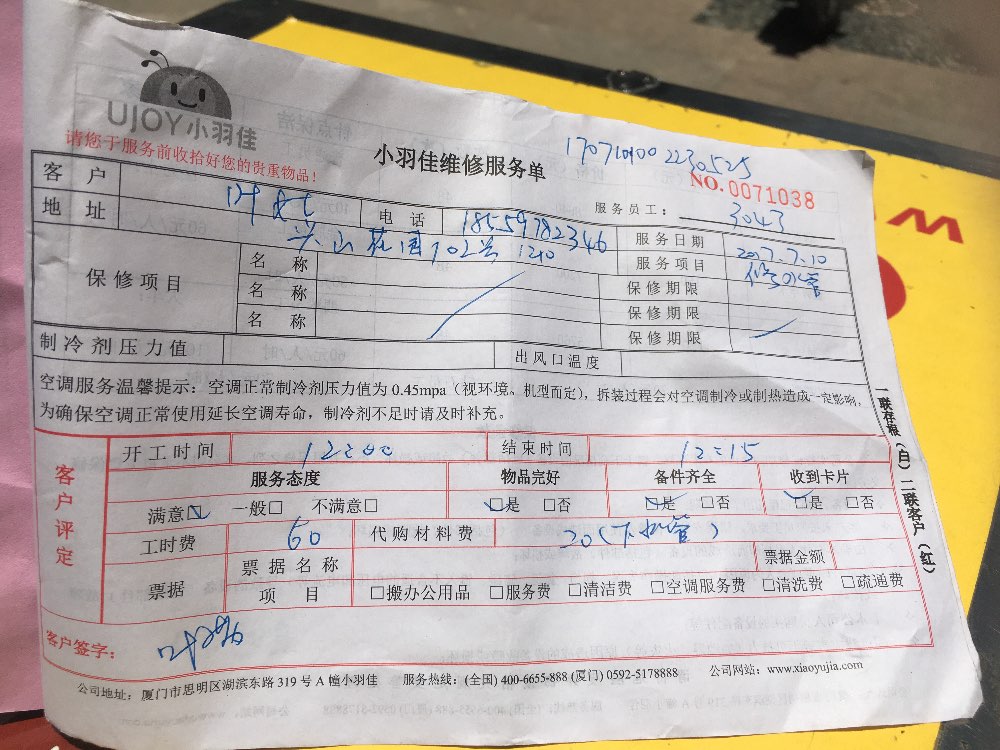 UJOY小羽佳
请您于服务前收拾好您的贵重物品！
小羽佳维修服务单
170710002230525
NO.0071038
服务员工： 3043
客户 叶女士 电话 18559782346 服务日期 2017.7.10
地址 兴山花园702号1210 服务项目 修水管
保修项目 名称 保修期限
名称 保修期限
名称 保修期限
制冷剂压力值 出风口温度
空调服务温馨提示：空调正常制冷剂压力值为 0.45mpa（视环境。机型而定），拆装过程会对空调制冷或制热造成一定影响，
为确保空调正常使用延长空调寿命，制冷剂不足时请及时补充。
客户评定
开工时间 12:00 结束时间 12:15
服务态度 物品完好 备件齐全 收到卡片
满意☑ 一般□ 不满意□ ☑是 □否 ☑是 □否 ☑是 □否
工时费 60 代购材料费 20(下水管)
票据 票据名称 票据金额
项目 □搬办公用品 □服务费 □清洁费 □空调服务费 □清洗费 □疏通费
客户签字：
公司地址：厦门市思明区湖滨东路 319 号 A 幢小羽佳 服务热线：(全国) 400-6655-888 (厦门) 0592-5178888 公司网站：www.xiaoyujia.com
一联存根（白）二联客户（红）